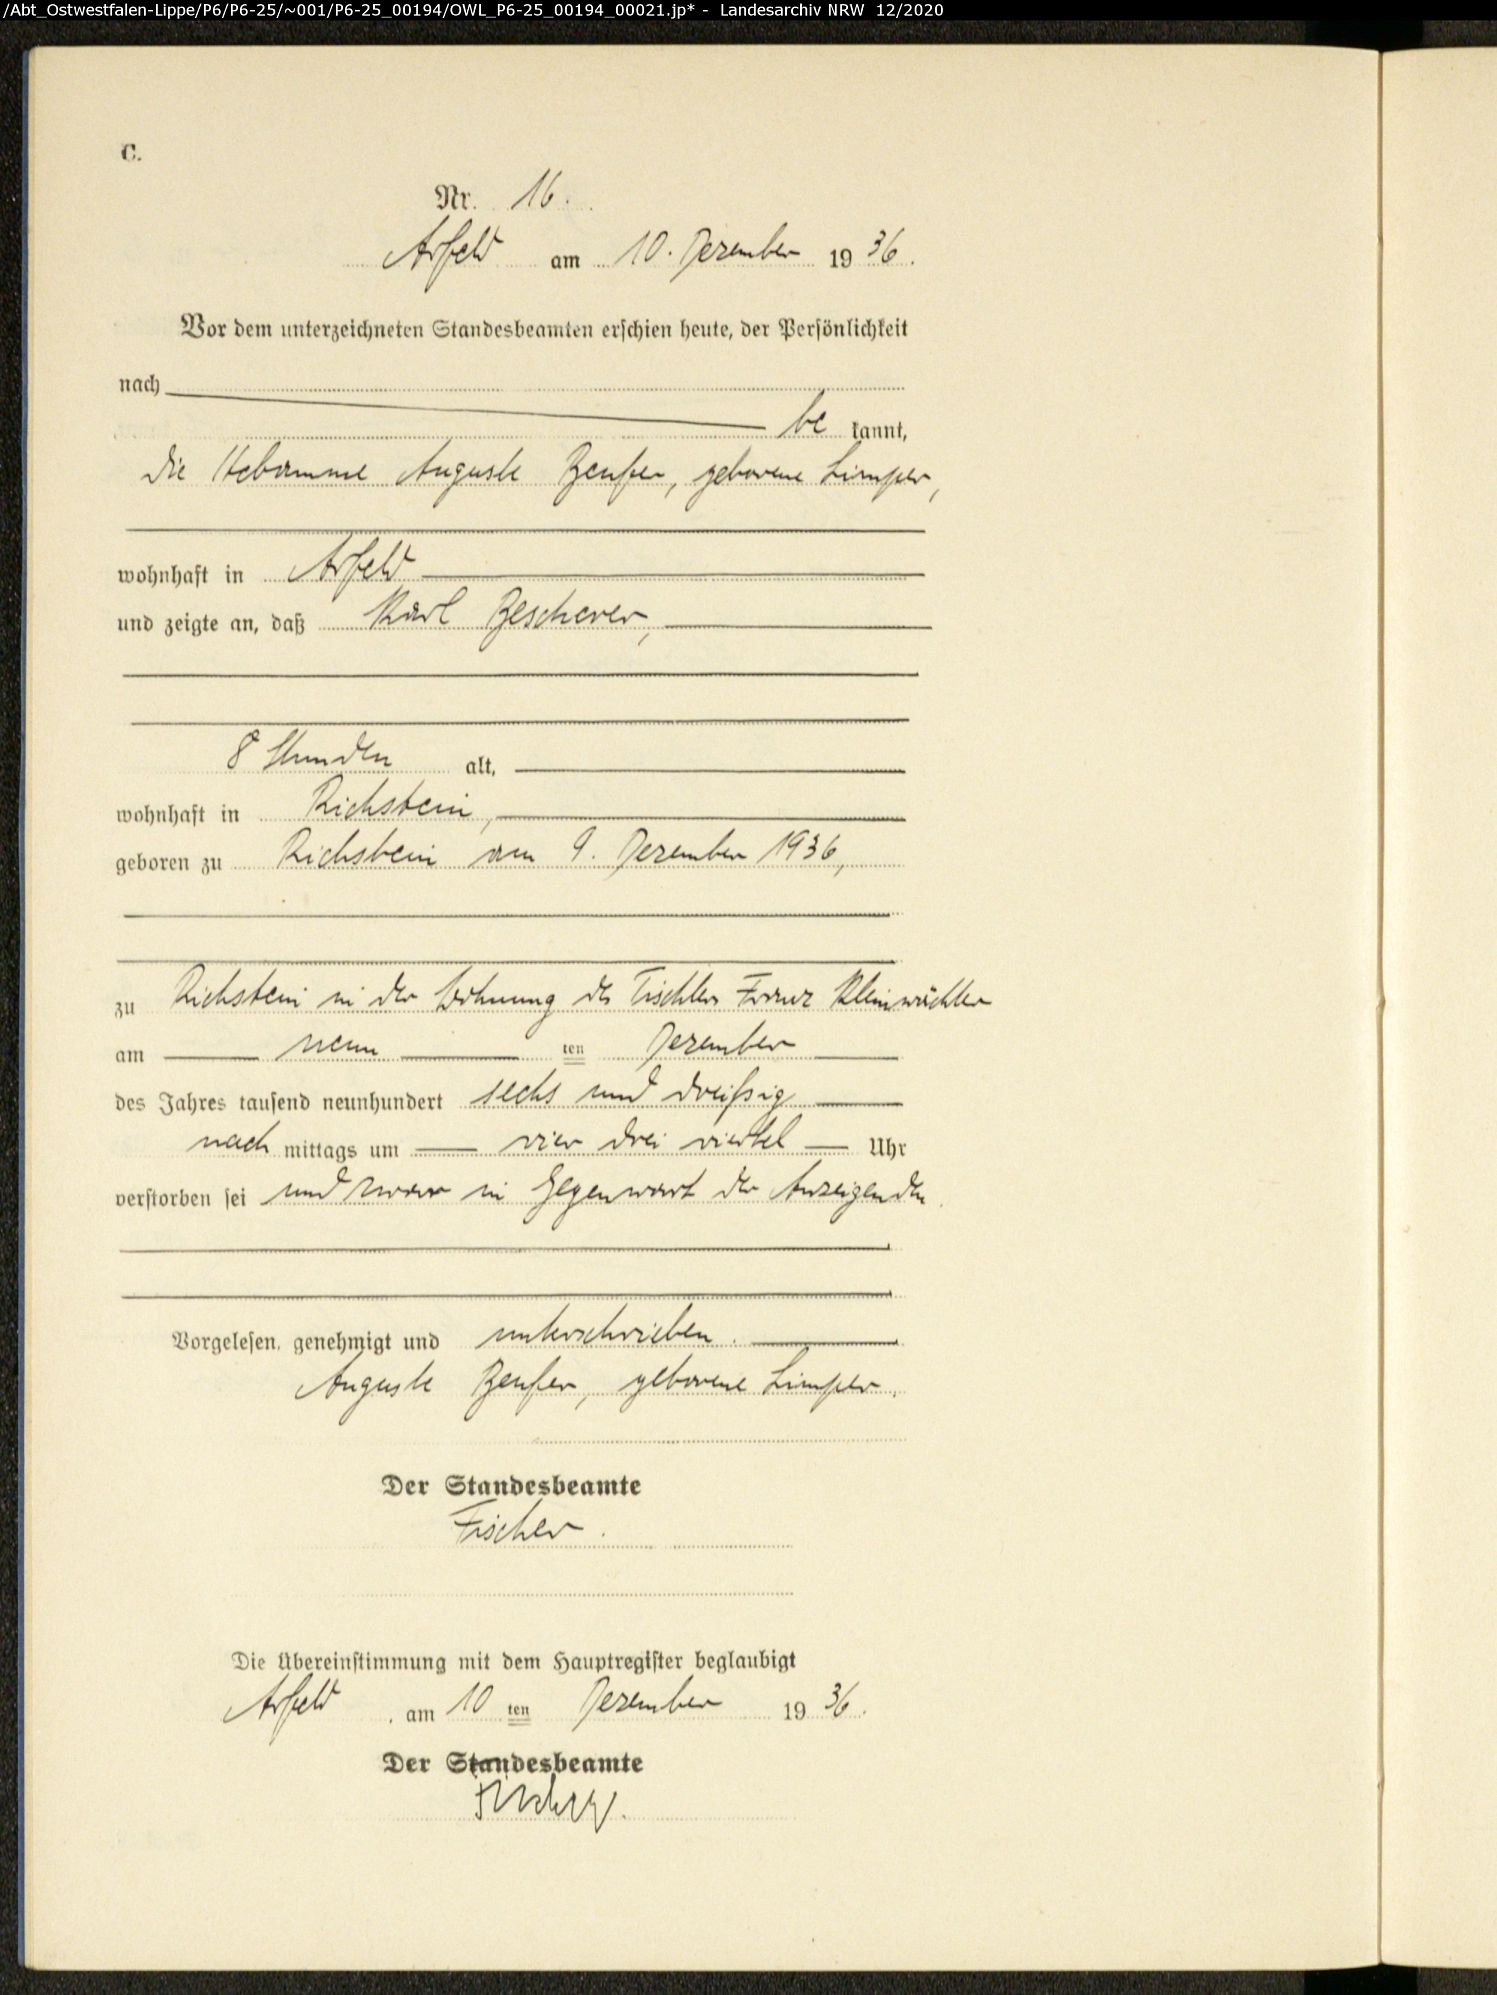 /Abt_Ostwestfalen-Lippe/P6/P6-25/~001/P6-25_00194/OWL_P6-25_00194_00021.jp* - Landesarchiv NRW 12/2020
C.
Nr. 16.
Arfeld am 10. Dezember 1936.
Vor dem unterzeichneten Standesbeamten erschien heute, der Persönlichkeit
nach
be kannt,
die Hebamme Auguste geborene Limper,
wohnhaft in Arfeld
und zeigte an, daß Karl Bescherer,
8 Stunden alt,
wohnhaft in Richstein,
geboren zu Richstein am 9. Dezember 1936,
zu Richstein in der Wohnung des Tischlers Franz Kleinwächter
am neun ten Dezember
des Jahres tausend neunhundert sechs und dreißig
nach mittags um vier drei viertel Uhr
verstorben sei und zwar in Gegenwart der Anzeigenden.
Vorgelesen, genehmigt und unterschrieben.
Auguste geborene Limper.
Der Standesbeamte
Fischer.
Die Übereinstimmung mit dem Hauptregister beglaubigt
Arfeld, am 10 ten Dezember 1936.
Der Standesbeamte
Fischer.